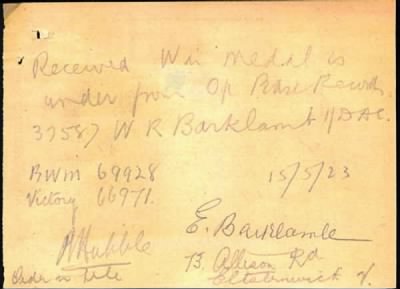 Received War Medal as
under from O/c Base Records
37587 W R Barklamb 1/DAC.
BWM 69928 15/5/23
Victory 66971.
E. Barklamb
13. Allison Rd
Elsternwick